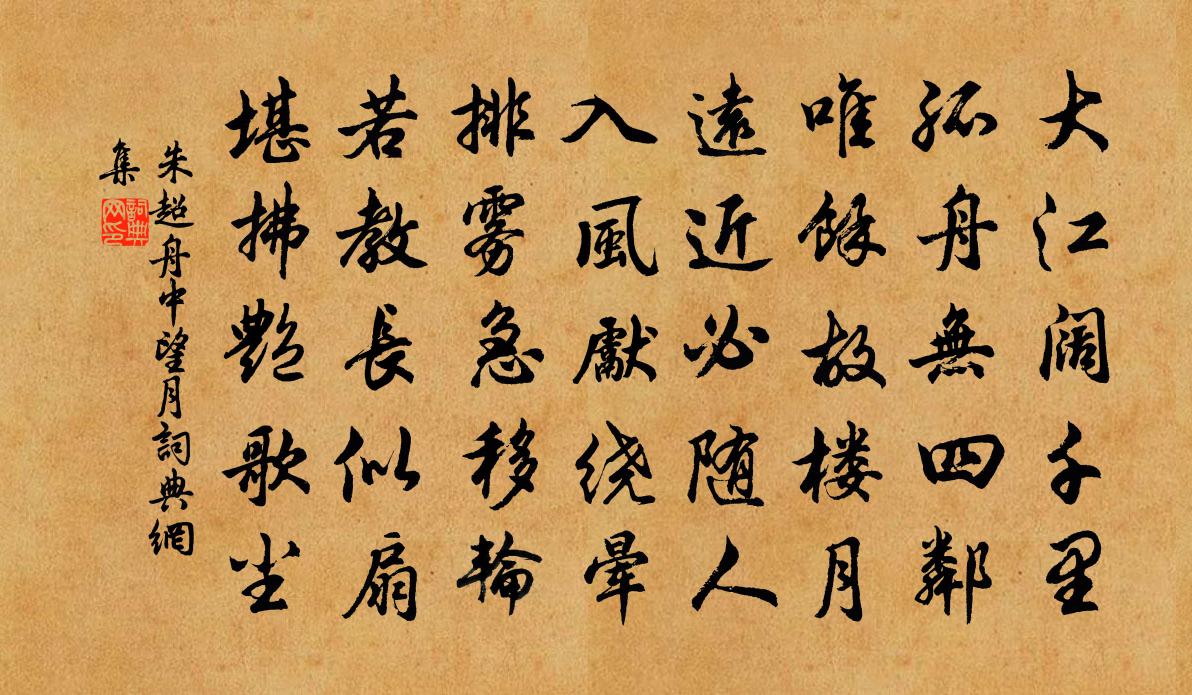 大江阔千里
孤舟無四鄰
唯餘故楼月
遠近必随人
入風獻绕暈
排雾急移輪
若教長似扇
堪拂艷歌尘
朱超舟中望月詞典網
集
詞典
网印